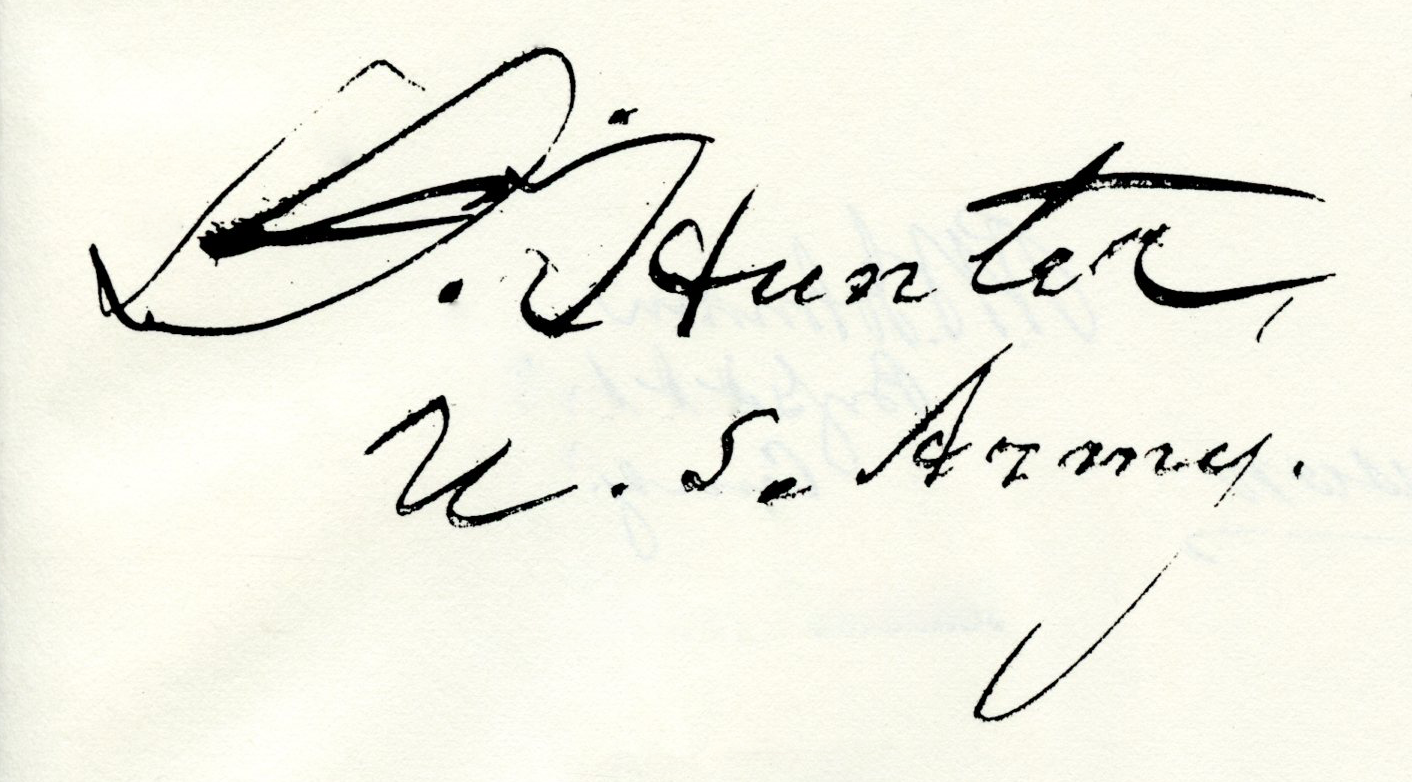 D. Hunter,
U. S. Army.